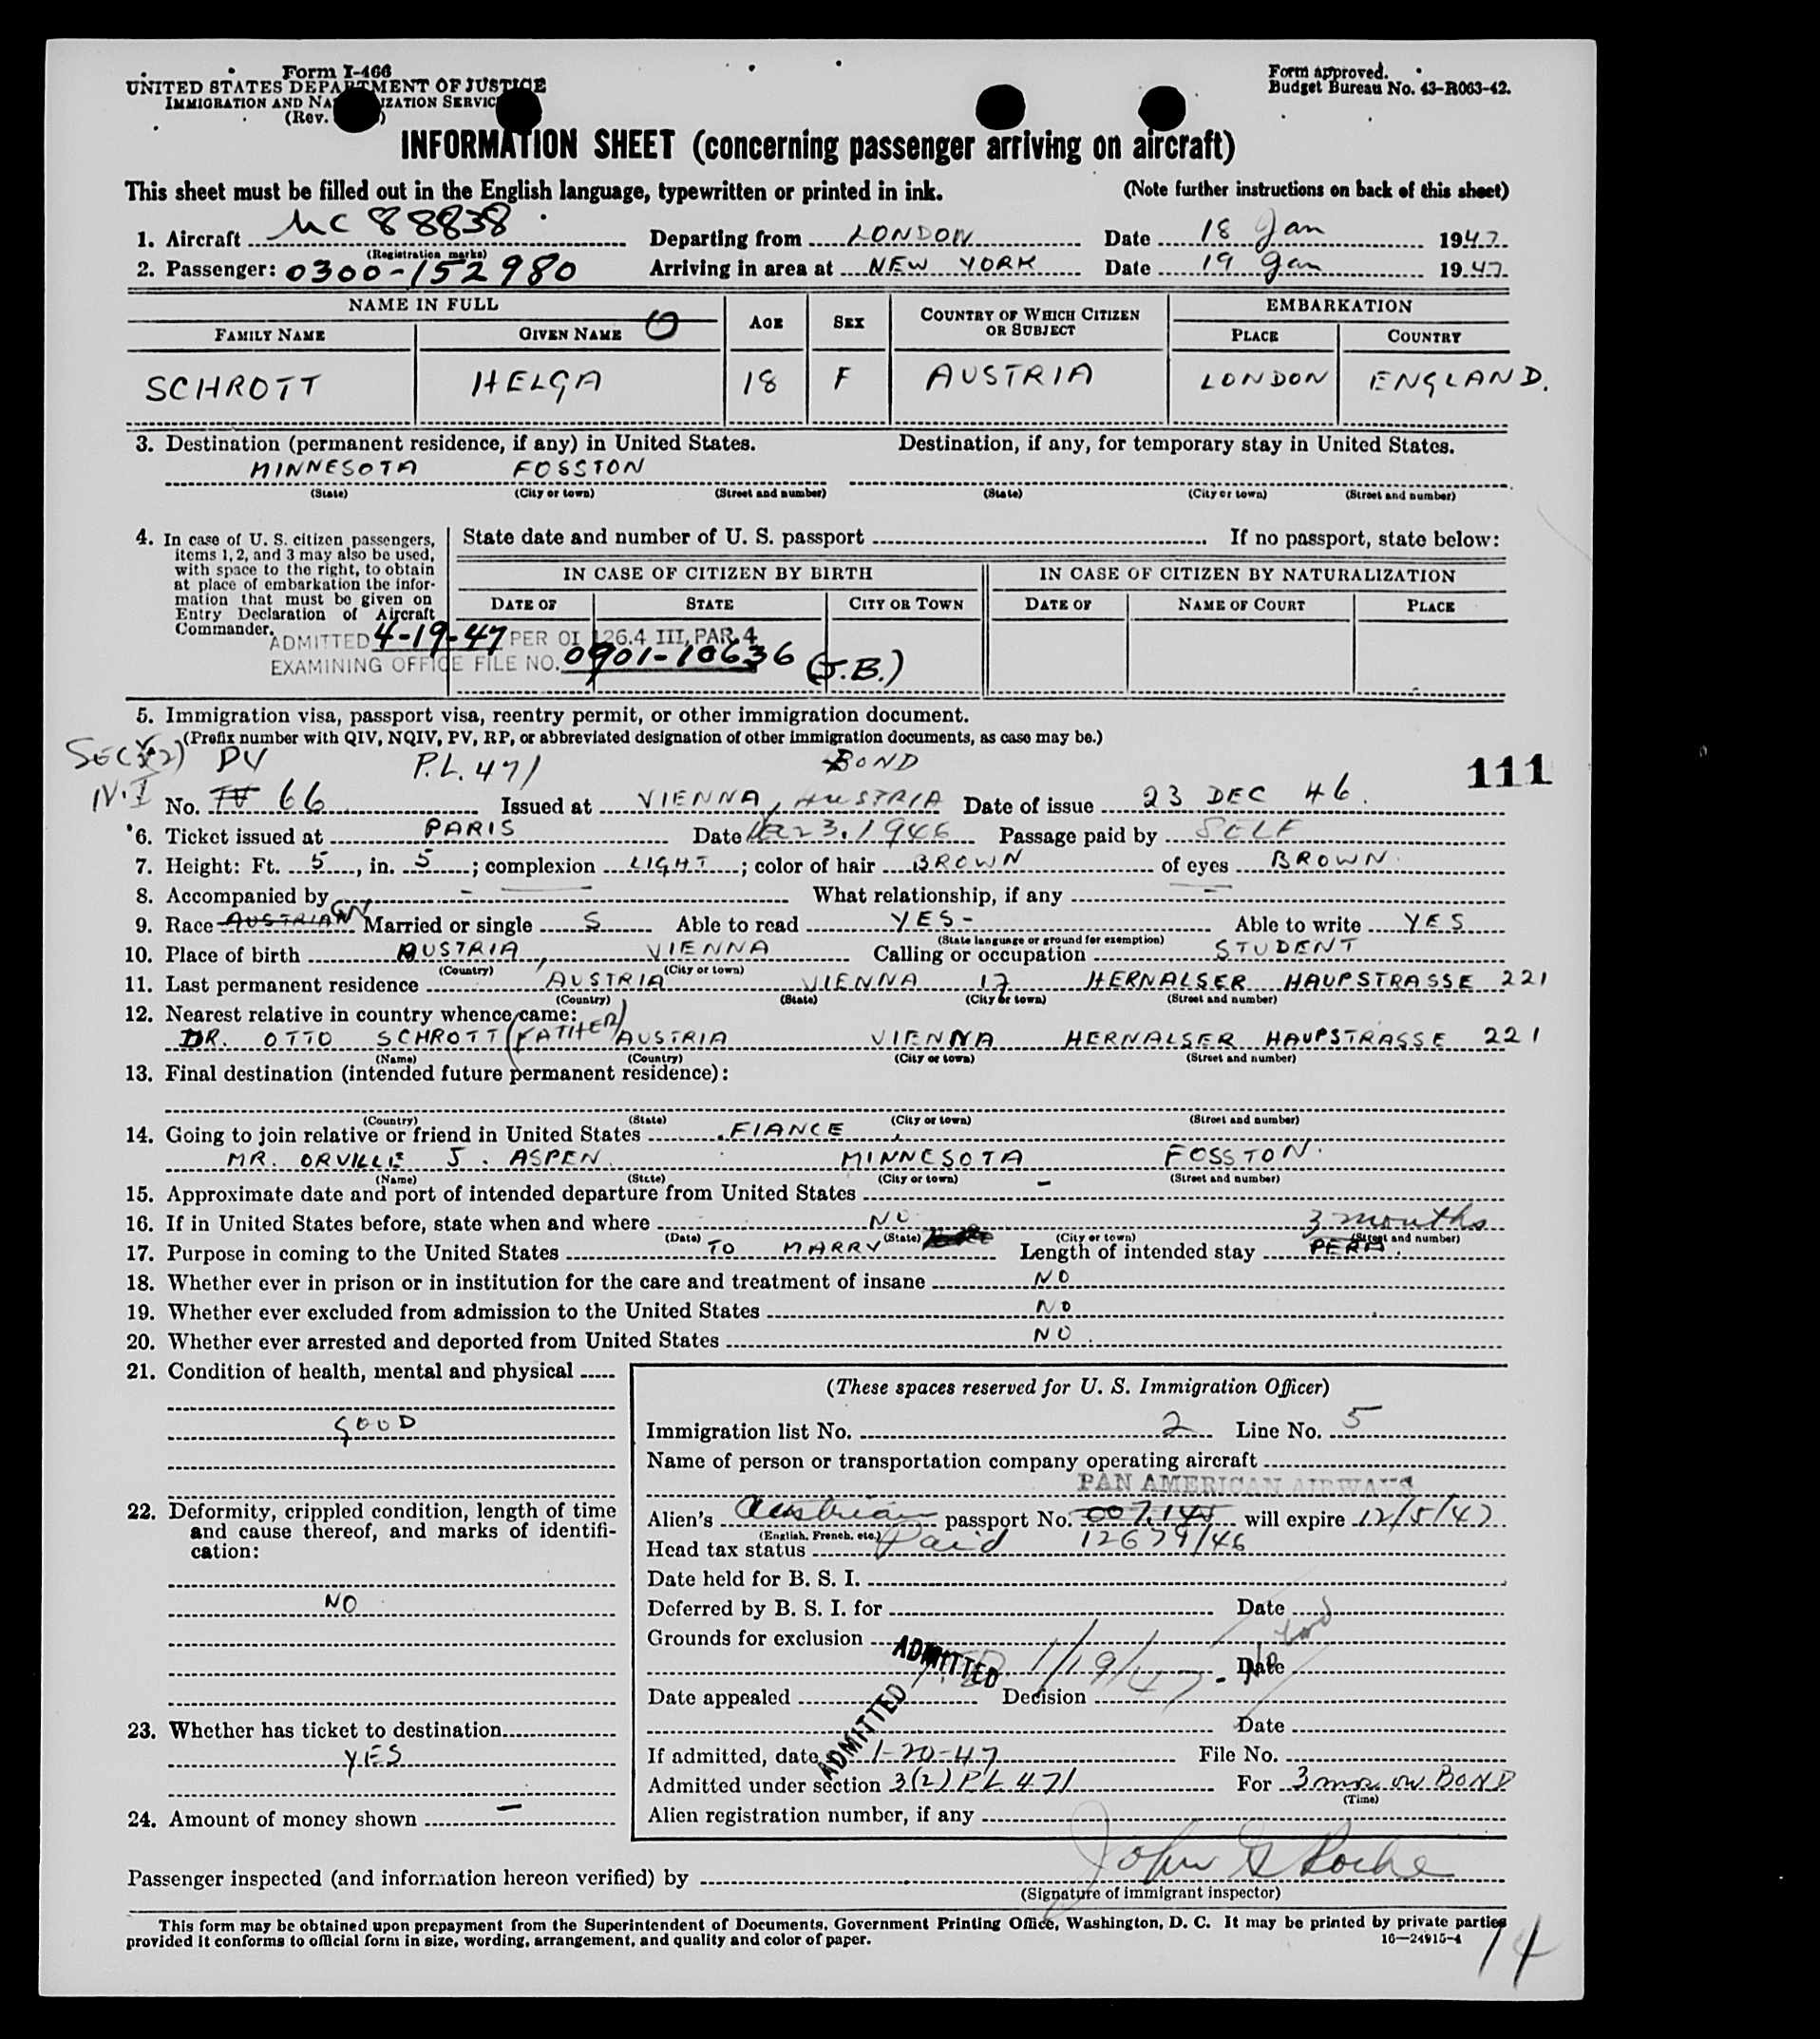 Form I-466
UNITED STATES DEPARTMENT OF JUSTICE
IMMIGRATION AND NA IZATION SERVIC
(Rev. )
Form approved.
Budget Bureau No. 43-R063-42.
INFORMATION SHEET (concerning passenger arriving on aircraft)
This sheet must be filled out in the English language, typewritten or printed in ink. (Note further instructions on back of this sheet)
1. Aircraft NC 88838 Departing from LONDON Date 18 Jan 1947
(Registration marks)
2. Passenger: 0300-152980 Arriving in area at NEW YORK Date 19 Jan 1947
NAME IN FULL AGE SEX COUNTRY OF WHICH CITIZEN OR SUBJECT EMBARKATION
FAMILY NAME GIVEN NAME PLACE COUNTRY
SCHROTT HELGA 18 F AUSTRIA LONDON ENGLAND.
3. Destination (permanent residence, if any) in United States. Destination, if any, for temporary stay in United States.
MINNESOTA FOSSTON
(State) (City or town) (Street and number) (State) (City or town) (Street and number)
4. In case of U. S. citizen passengers, items 1, 2, and 3 may also be used, with space to the right, to obtain at place of embarkation the information that must be given on Entry Declaration of Aircraft Commander.
State date and number of U. S. passport If no passport, state below:
IN CASE OF CITIZEN BY BIRTH IN CASE OF CITIZEN BY NATURALIZATION
DATE OF STATE CITY OR TOWN DATE OF NAME OF COURT PLACE
ADMITTED 4-19-47 PER OI 126.4 III, PAR. 4
EXAMINING OFFICE FILE NO. 0901-10636 (J.B.)
5. Immigration visa, passport visa, reentry permit, or other immigration document.
(Prefix number with QIV, NQIV, PV, RP, or abbreviated designation of other immigration documents, as case may be.)
PV P.L. 471 BOND
111
No. 66 Issued at VIENNA, AUSTRIA Date of issue 23 DEC 46.
6. Ticket issued at PARIS Date Dec 23, 1946 Passage paid by SELF
7. Height: Ft. 5, in. 5; complexion LIGHT; color of hair BROWN of eyes BROWN
8. Accompanied by - What relationship, if any -
9. Race AUSTRIAN Married or single S Able to read YES - Able to write YES
(State language or ground for exemption)
10. Place of birth AUSTRIA, VIENNA Calling or occupation STUDENT
(Country) (City or town)
11. Last permanent residence AUSTRIA VIENNA 17 HERNALSER HAUPSTRASSE 221
(Country) (State) (City or town) (Street and number)
12. Nearest relative in country whence came:
DR. OTTO SCHROTT (FATHER) AUSTRIA VIENNA HERNALSER HAUPSTRASSE 221
(Name) (Country) (City or town) (Street and number)
13. Final destination (intended future permanent residence):
(Country) (State) (City or town) (Street and number)
14. Going to join relative or friend in United States FIANCE
MR. ORVILLE J. ASPEN MINNESOTA FOSSTON.
(Name) (State) (City or town) (Street and number)
15. Approximate date and port of intended departure from United States -
16. If in United States before, state when and where NO 3 months
(Date) (State) (City or town) (Street and number)
17. Purpose in coming to the United States TO MARRY Length of intended stay PERM.
18. Whether ever in prison or in institution for the care and treatment of insane NO
19. Whether ever excluded from admission to the United States NO
20. Whether ever arrested and deported from United States NO
21. Condition of health, mental and physical
GOOD
22. Deformity, crippled condition, length of time and cause thereof, and marks of identification:
NO
23. Whether has ticket to destination
YES
24. Amount of money shown -
(These spaces reserved for U. S. Immigration Officer)
Immigration list No. 2 Line No. 5
Name of person or transportation company operating aircraft
PAN AMERICAN AIRWAYS
Alien's Austrian passport No. 007,145 will expire 12/5/47
(English, French, etc.)
Head tax status Paid 12679/46
Date held for B. S. I.
Deferred by B. S. I. for Date
Grounds for exclusion
ADMITTED 1/19/47 Date
Date appealed Decision
ADMITTED Date
If admitted, date 1-20-47 File No.
Admitted under section 3(2) PL 471 For 3 mos on BOND
(Time)
Alien registration number, if any
Passenger inspected (and information hereon verified) by John G Roche
(Signature of immigrant inspector)
This form may be obtained upon prepayment from the Superintendent of Documents, Government Printing Office, Washington, D. C. It may be printed by private parties
provided it conforms to official form in size, wording, arrangement, and quality and color of paper. 16—24915-4
14